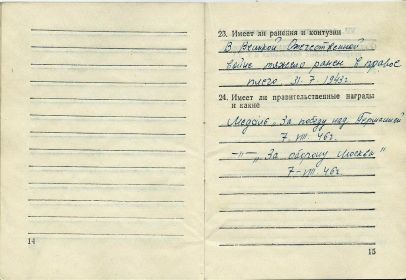 23. Имеет ли ранения и контузии
В Великой Отечественной
войне тяжело ранен в правое
плечо. 31.7.1943г.
24. Имеет ли правительственные награды
и какие
Медаль „За победу над Германией"
7-VIII.46г.
-"- „За оборону Москвы"
7-VIII.46г.
14
15